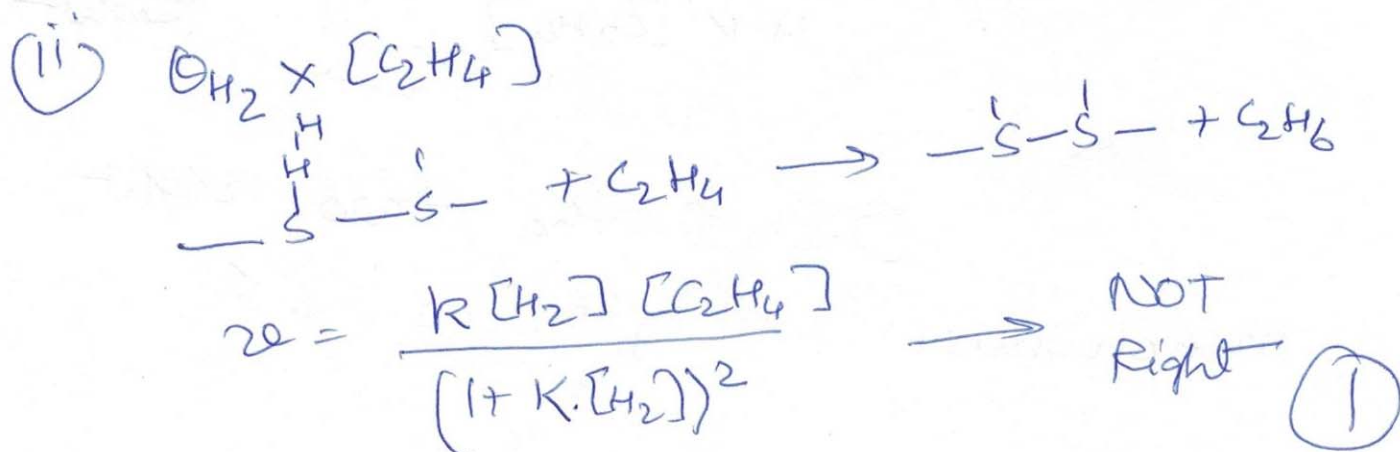 (ii) θH₂ × [C₂H₄]
H
H
—S—S— + C₂H₄ → —S—S— + C₂H₆
v = k[H₂] [C₂H₄] / (1 + K.[H₂])² → NOT Right
1